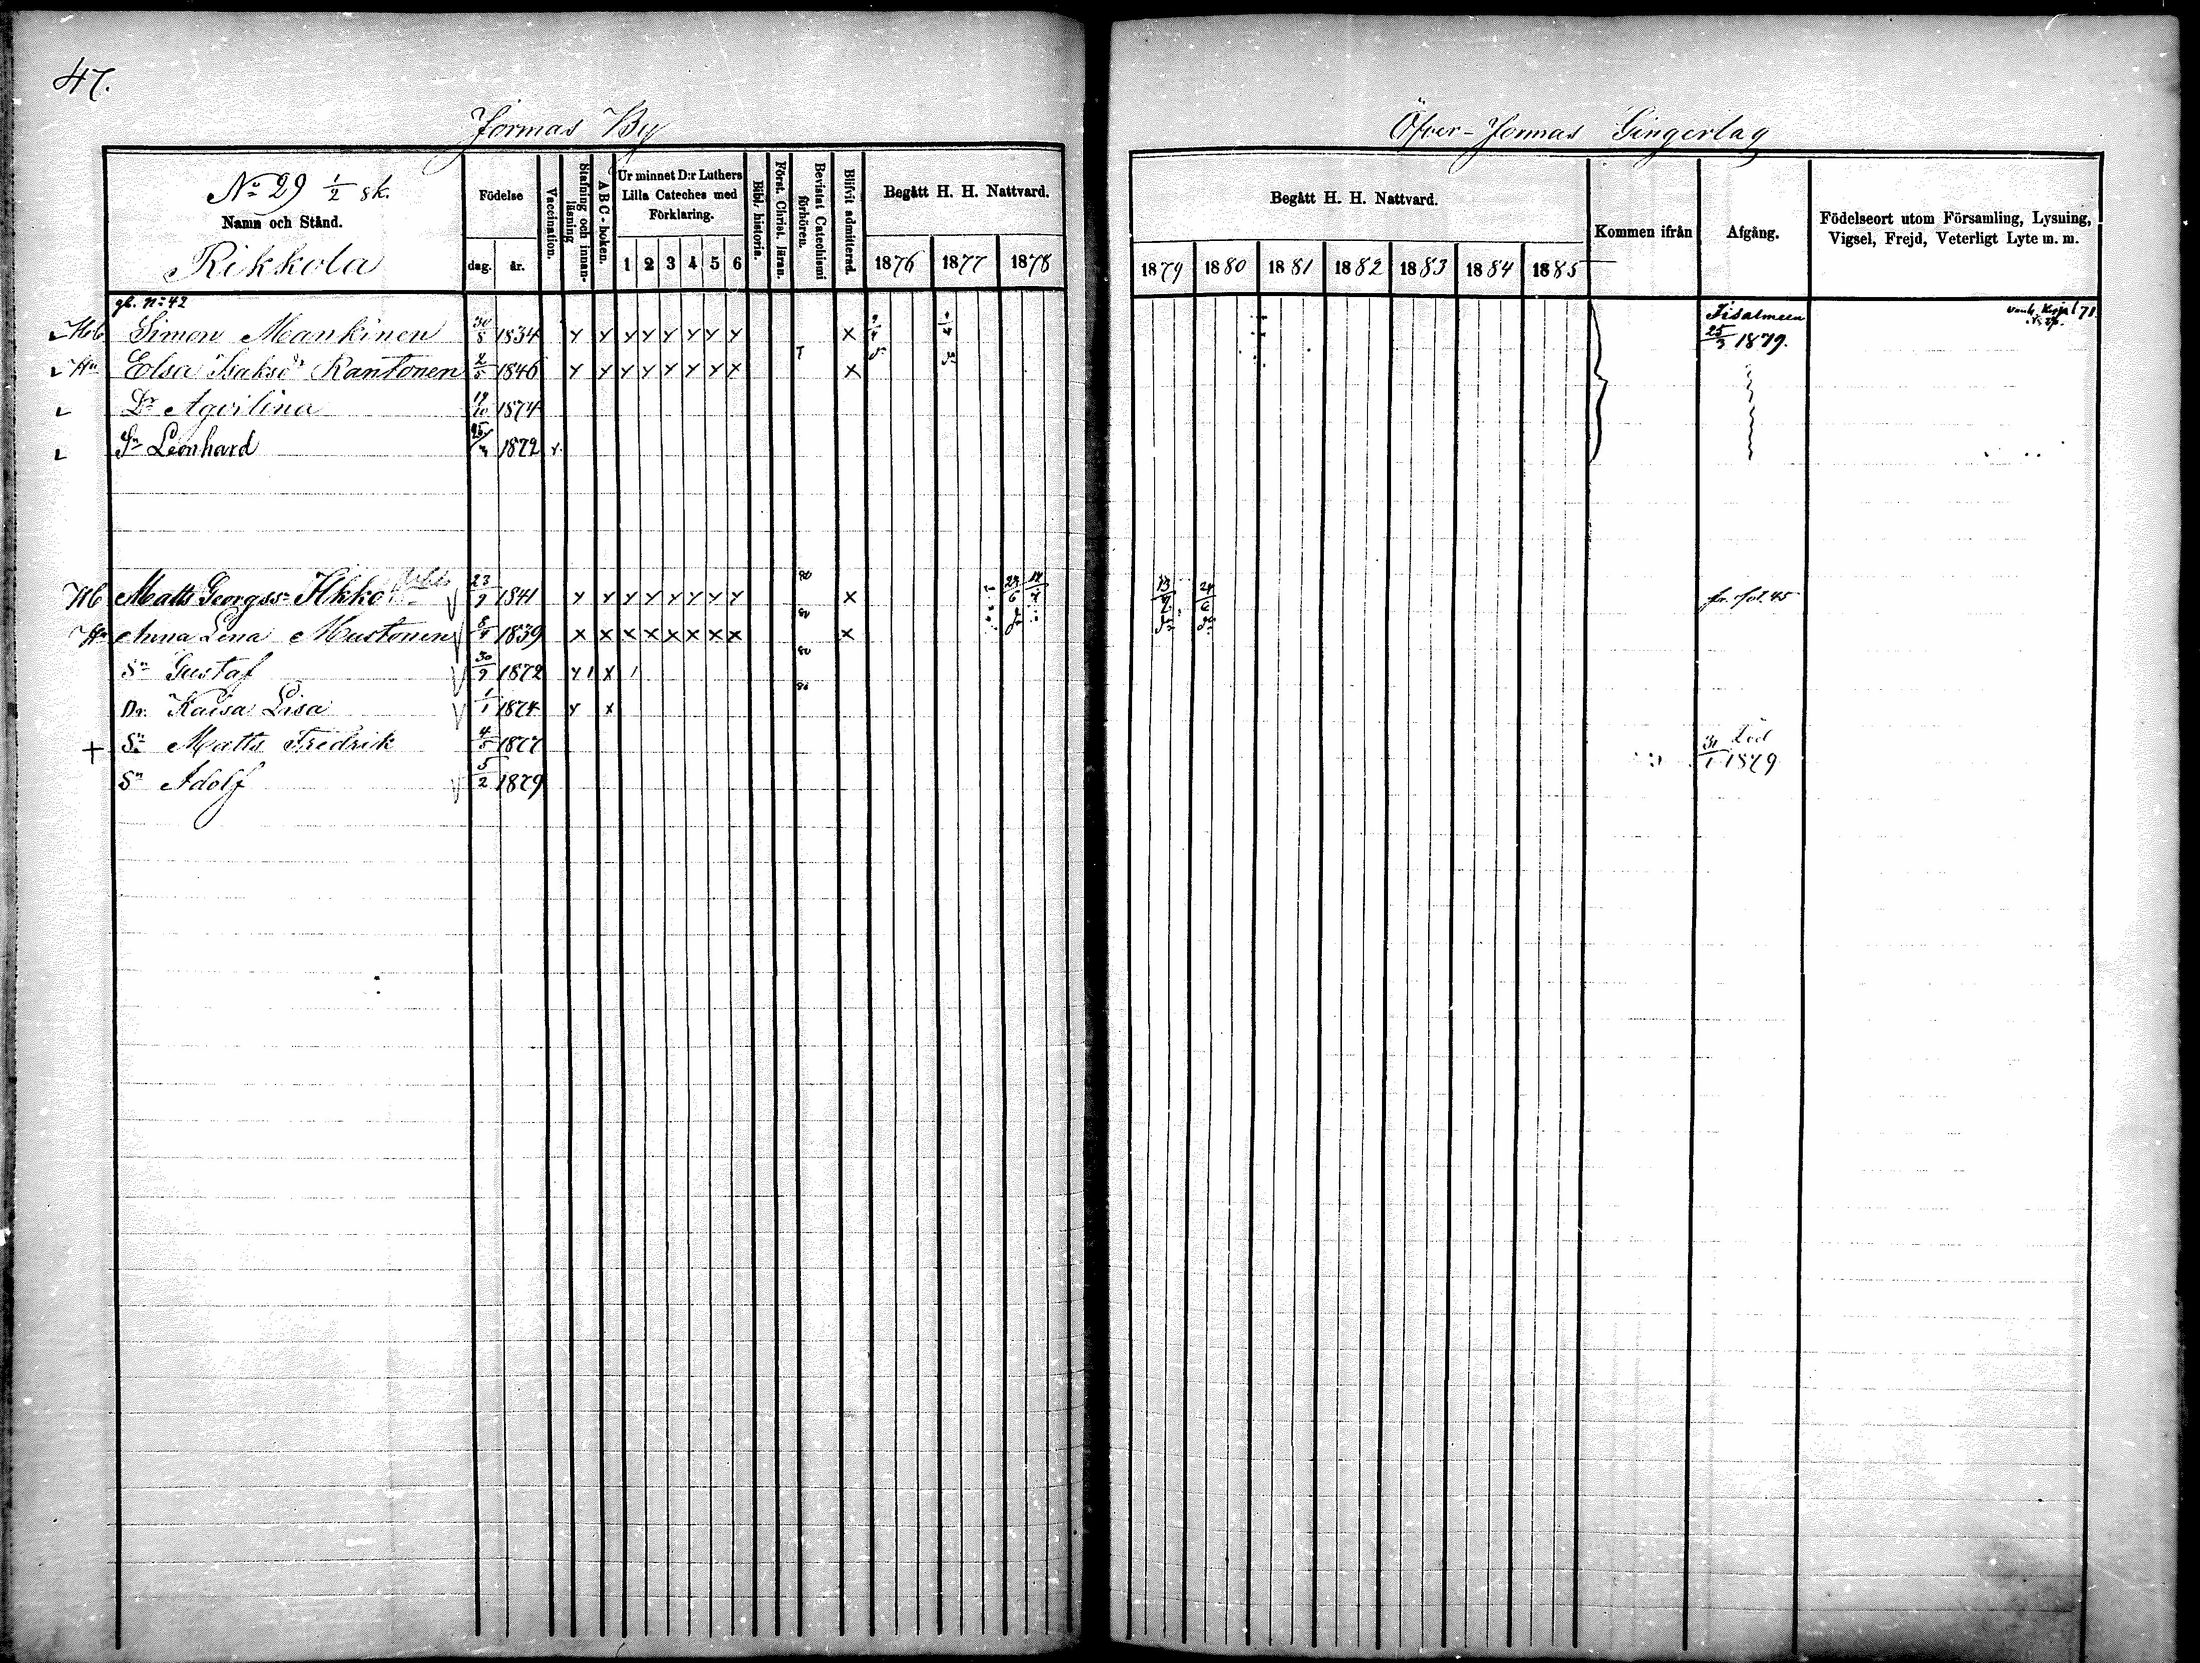 47.
Jormas By
Öfver-Jormas Gingerlag
No 29 1/2 sk.
Namn och Stånd.
Rikkola
Födelse
dag. år.
Vaccination.
Stafning och innan-läsning
ABC-boken.
Ur minnet D:r Luthers Lilla Cateches med Förklaring.
1 2 3 4 5 6
Bibl. historia.
Först. Christ. läran.
Bevistat Catechismi förhören.
Blifvit admitterad.
Begått H. H. Nattvard.
1876 1877 1878
Begått H. H. Nattvard.
1879 1880 1881 1882 1883 1884 1885
Kommen ifrån
Afgång.
Födelseort utom Församling, Lysning, Vigsel, Frejd, Veterligt Lyte m. m.
gl. No 42
Simon Mankinen 30/8 1834 Y Y Y Y Y Y Y Y X Iisalmeen 25/3 1879. 71
Hu Elsa Isaksdr Rantonen 2/5 1846 Y Y Y Y Y Y Y Y X
Dr Agvilina 19/10 1874
Sn Leonhard 1872 Y
Hb Matts Georgss. Ikko 23/9 1841 Y Y Y Y Y Y Y Y 80 X 24/6 24/6 fr. fol. 45
Hu Anna Lena Mustonen 1839 X X X X X X X X 80 X do do do
Sn Gustaf 30/9 1872 Y 1 X 1 80
Dr. Kaisa Lisa 1/1 1874 Y X
+ Sn Matts Fredrik 4/5 1877 Död 31/1 1879
Sn Adolf 5/2 1879